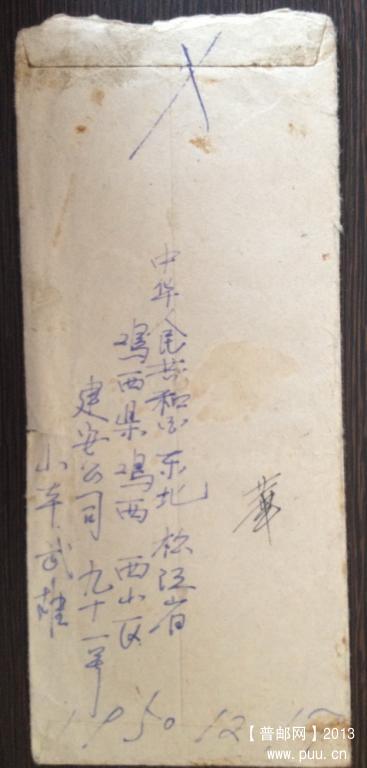 中华人民共和国东北 松江省
鸡西県鸡西 西山区
建安公司 九十一号
山本武雄
華
1950 12 17
【普邮网】2013
www.puu.cn